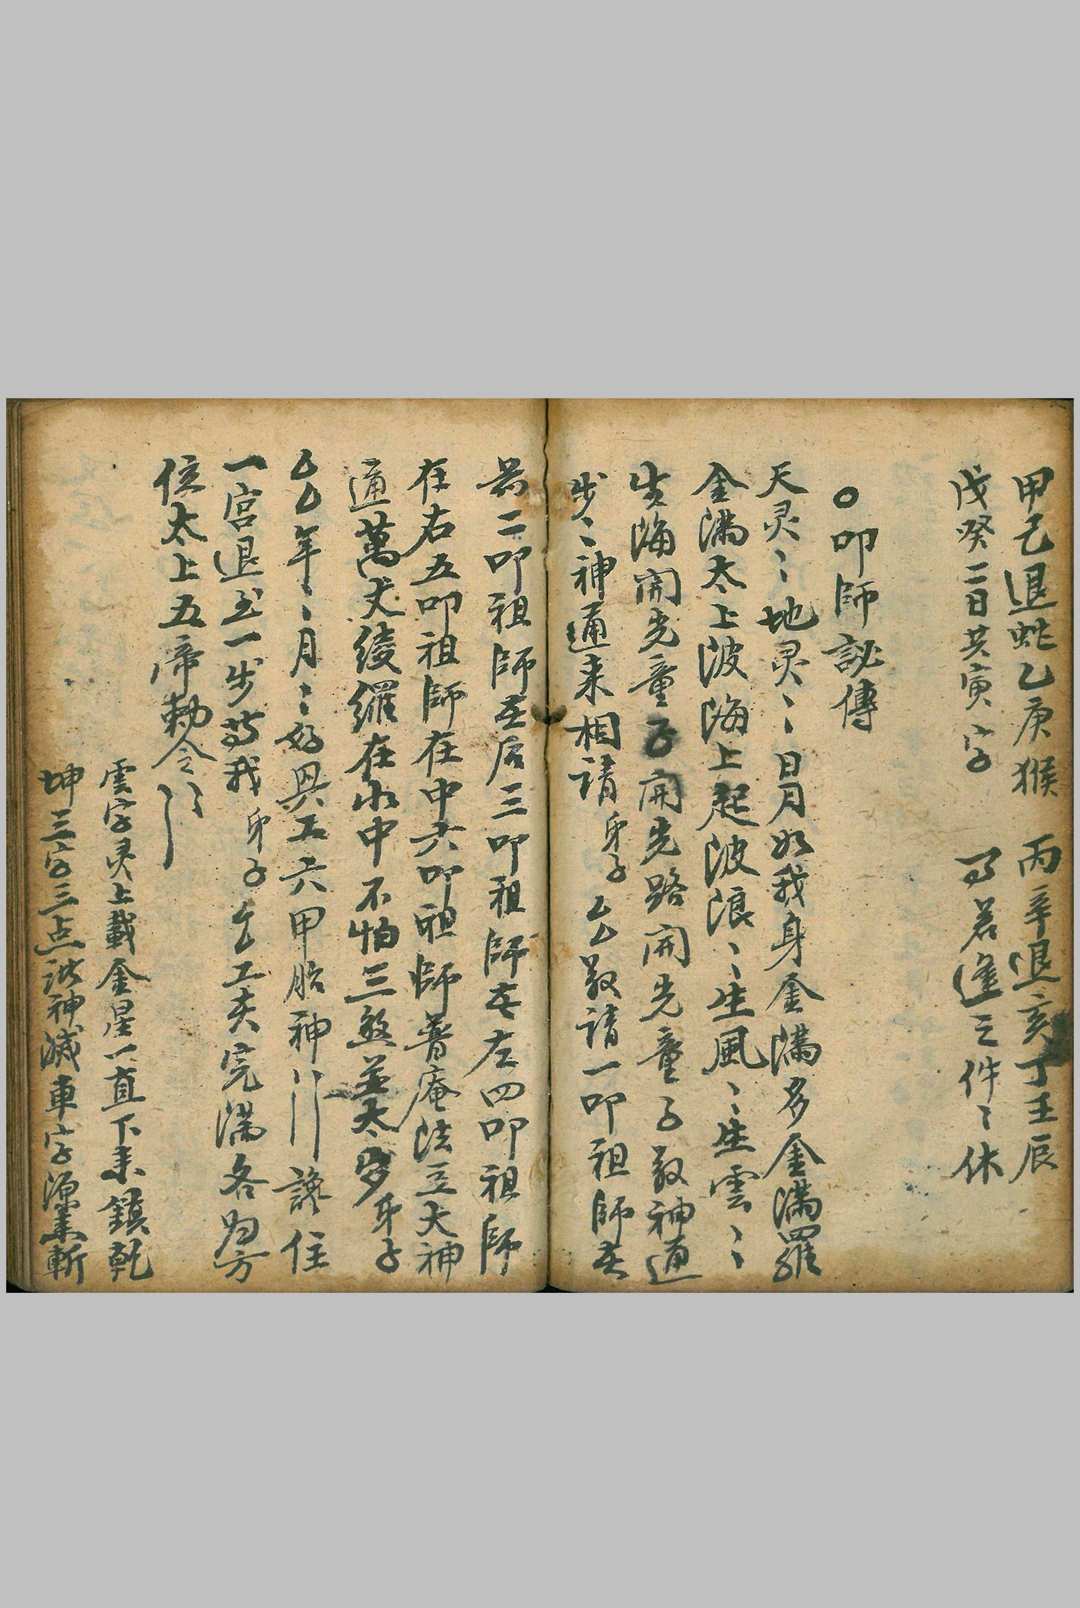 甲己退蛇乙庚猴　丙辛退亥丁壬辰
戊癸二日共寅字　若逢三件〻休
○叩師訣傳
天灵〻地灵〻日月如我身金滿多金滿羅
金滿太上波海上起波浪〻生風〻生雲〻
生海開先童子開先路開先童子敎神通
步〻神通來相請弟子厶敎請一叩祖師在
前二叩祖師在后三叩祖師在左四叩祖師
在右五叩祖師在中六叩祖師普庵法主大神
通萬丈綾羅在水中不怕三煞並太歲弟子
厶年〻月〻好與五六甲胎神讒住
一宮退出一步與我弟子厶工夫完滿各归方
位太上五帝勅令
雲字灵上載金星一直下来鎮乾
坤三字三点波神滅車字源来斬